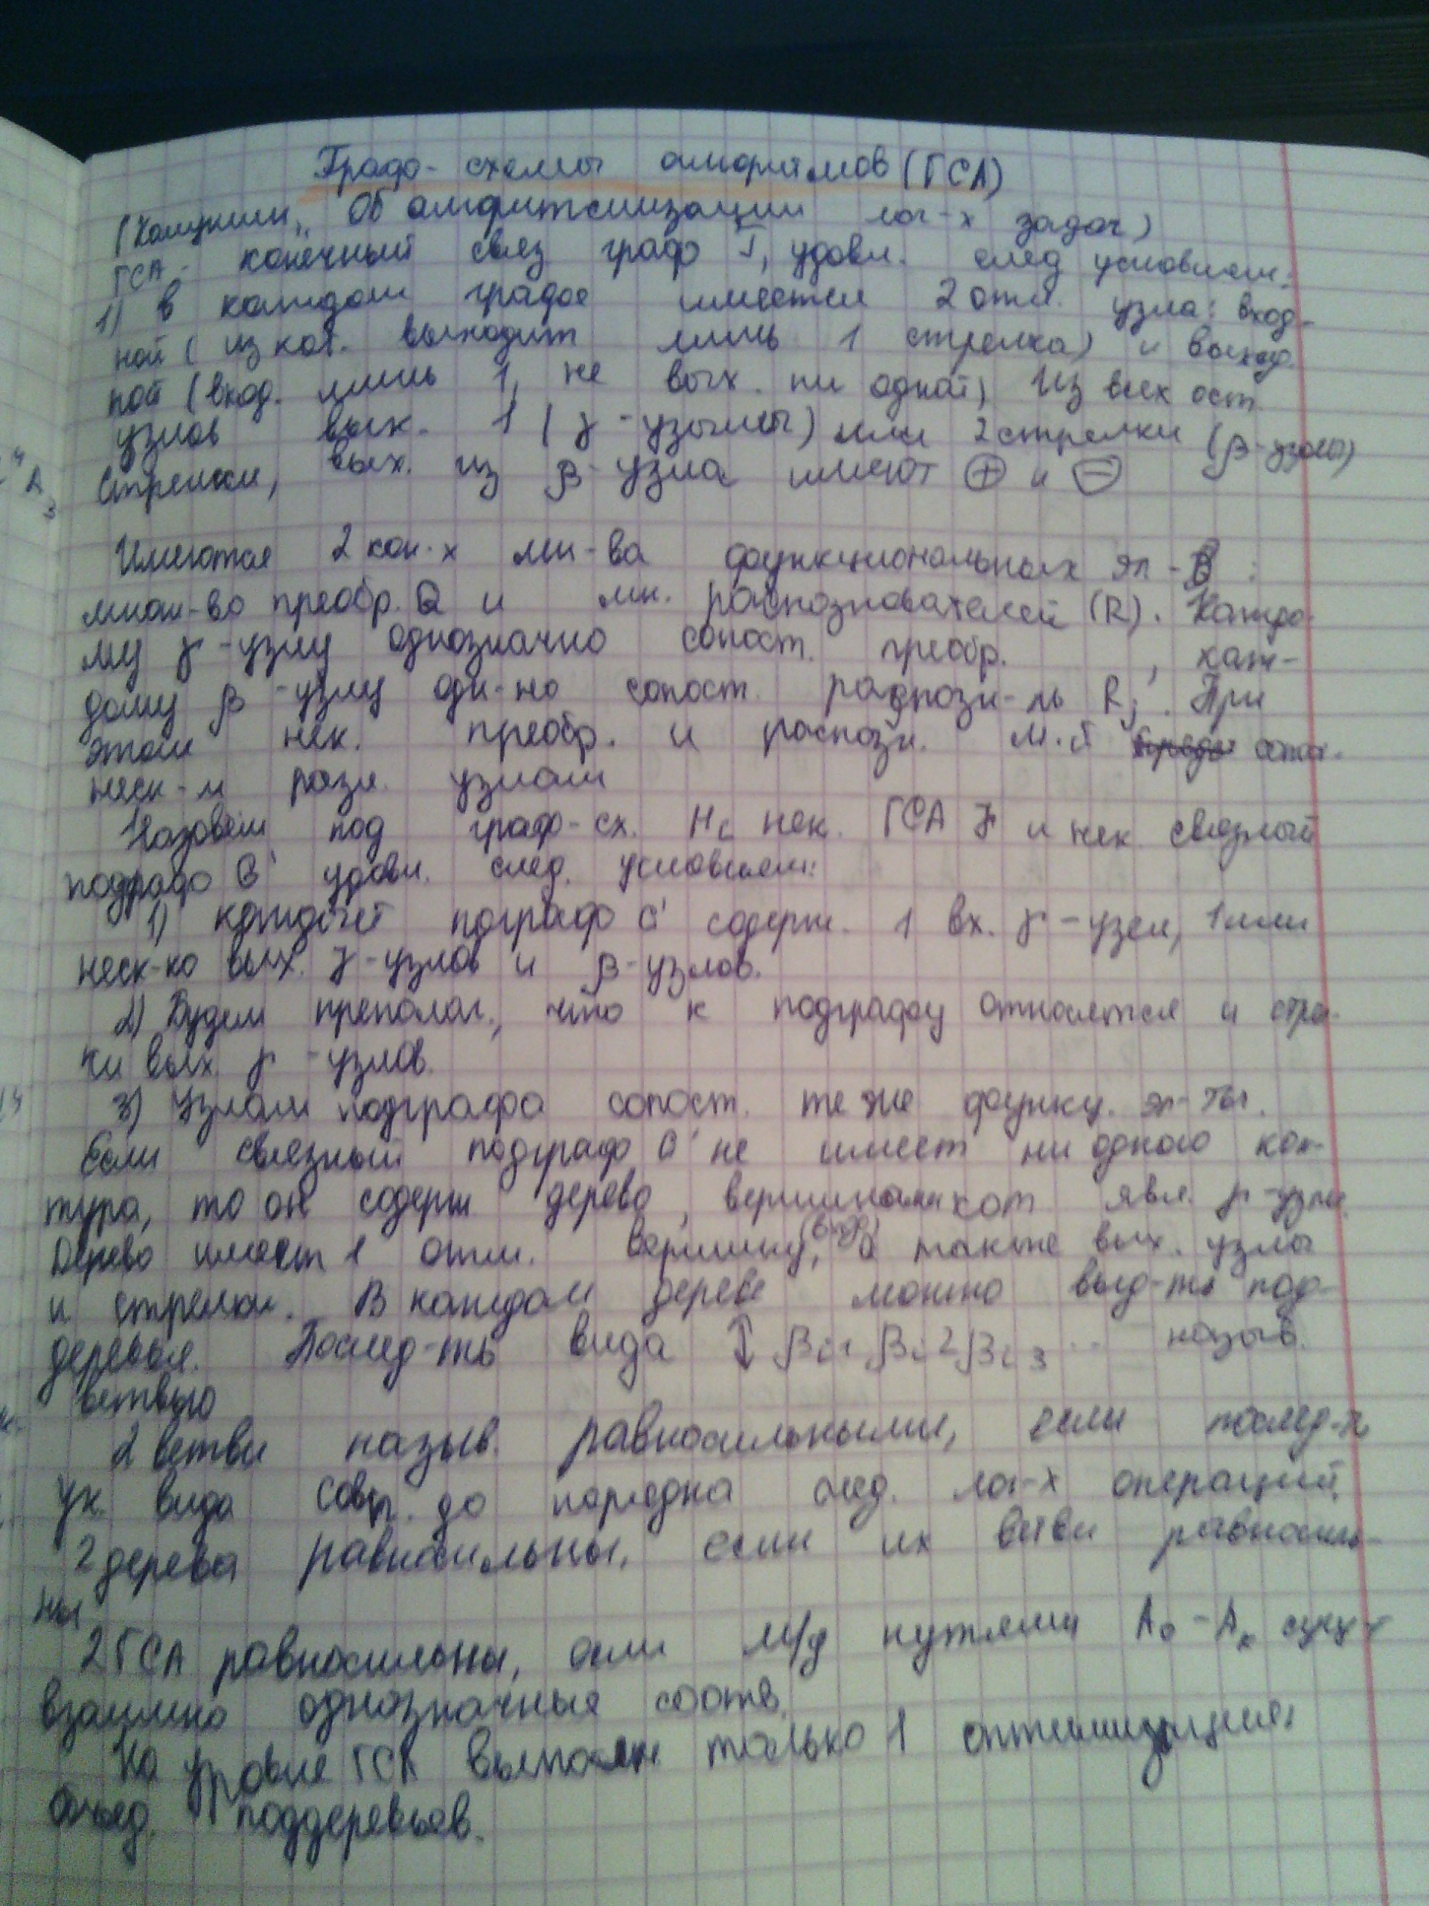 Графо-схемы алгоритмов (ГСА)
(Калужнин, "Об алгоритмизации лог-х задач)
ГСА - конечный связ граф Г, удовл. след условием:
1) в каждом графе имеется 2 отл. узла: вход-
ной (из кот. выходит лишь 1 стрелка) и выход.
ной (вход. лишь 1, не вых. ни одной) Из всех ост
узлов вых. 1 (γ-узлы) или 2 стрелки (β-узлы)
Стрелки, вых. из β-узла имеют ⊕ и ⊖
Имеются 2 кон-х мн-ва функциональных эл-в:
множ-во преобр. Q и мн. распознавателей (R). Каждо
му γ-узлу однозначно сопост. преобр. , каж-
дому β-узлу одн-но сопост. распозн-ль Rj. При
этом нек. преобр. и распозн. м.б сопост.
неск-м разл. узлам
Назовём под граф-сх. Hi нек. ГСА γ и нек. связный
подграф G' удовл. след. условием:
1) каждый пограф G' содерж. 1 вх. γ-узел, 1 или
неск-ко вых. γ-узлов и β-узлов.
2) Будем преполаг., что к подграфу относятся и стрел-
ки вых. γ-узлов.
3) Узлам подграфа сопост. те же функц. эл-ты.
Если связный подграф G' не имеет ни одного кон-
тура, то он содерж дерево, вершинами кот явл. γ-узлы.
Дерево имеет 1 отл. вершину, (вход) а также вых. узлы
и стрелки. В каждом дереве можно выд-ть под-
деревья. Послед-ть вида ↕ βi1 βi2 βi3 ... назыв.
ветвью
2 ветви назыв. равносильными, если послед-ть
ук. вида совп. до порядка след. лог-х операций.
2 дерева равносильны, если их ветви равносиль-
ны
2 ГСА равносильны, если м/д путями A0 - Ak сущ-т
взаимно однозначные соотв.
На уровне ГСА выполн. только 1 оптимизация:
объед. поддеревьев.